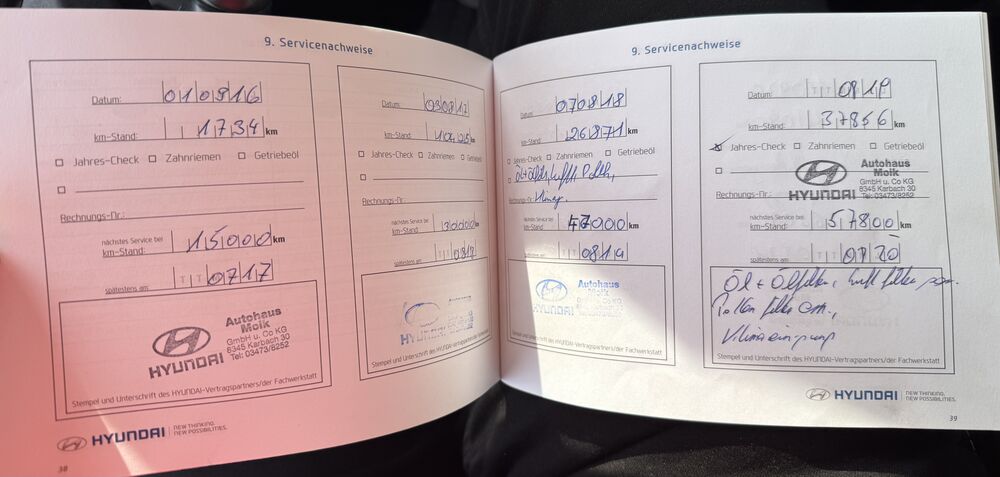 9. Servicenachweise
Datum: 010816
km-Stand: 1734 km
Jahres-Check Zahnriemen Getriebeöl
Rechnungs-Nr.:
nächstes Service bei
km-Stand: 15000 km
spätestens am: TT 0717
Autohaus
Moik
GmbH u. Co KG
8345 Karbach 30
Tel: 03473/8252
HYUNDAI
Stempel und Unterschrift des HYUNDAI-Vertragspartners/der Fachwerkstatt
HYUNDAI NEW THINKING. NEW POSSIBILITIES.
38
Datum: 030817
km-Stand:
Jahres-Check Zahnriemen Getriebeöl
Rechnungs-Nr.:
nächstes Service bei
km-Stand: 30000 km
spätestens am: 0818
Stempel und Unterschrift des HYUNDAI-Vertragspartners/der
9. Servicenachweise
Datum: 070818
km-Stand: 26871 km
Jahres-Check Zahnriemen Getriebeöl
Öl + Ölfilter, Luftf., Pollen,
Rechnungs-Nr.:
nächstes Service bei
km-Stand: 47000 km
spätestens am: 0819
Autohaus
Moik
GmbH u. Co KG
Stempel und Unterschrift des HYUNDAI-Vertragspartners/der Fachwerkstatt
Datum: TT 0819
km-Stand: 37856 km
Jahres-Check Zahnriemen Getriebeöl
Autohaus
Moik
GmbH u. Co KG
8345 Karbach 30
Tel: 03473/8252
HYUNDAI
Rechnungs-Nr.:
nächstes Service bei
km-Stand: 57800 km
spätestens am: TT 0720
Öl + Ölfilter, Luftfilter
Pollenfilter ern.,
Klimareinigung
Stempel und Unterschrift des HYUNDAI-Vertragspartners/der Fachwerkstatt
HYUNDAI NEW THINKING. NEW POSSIBILITIES.
39